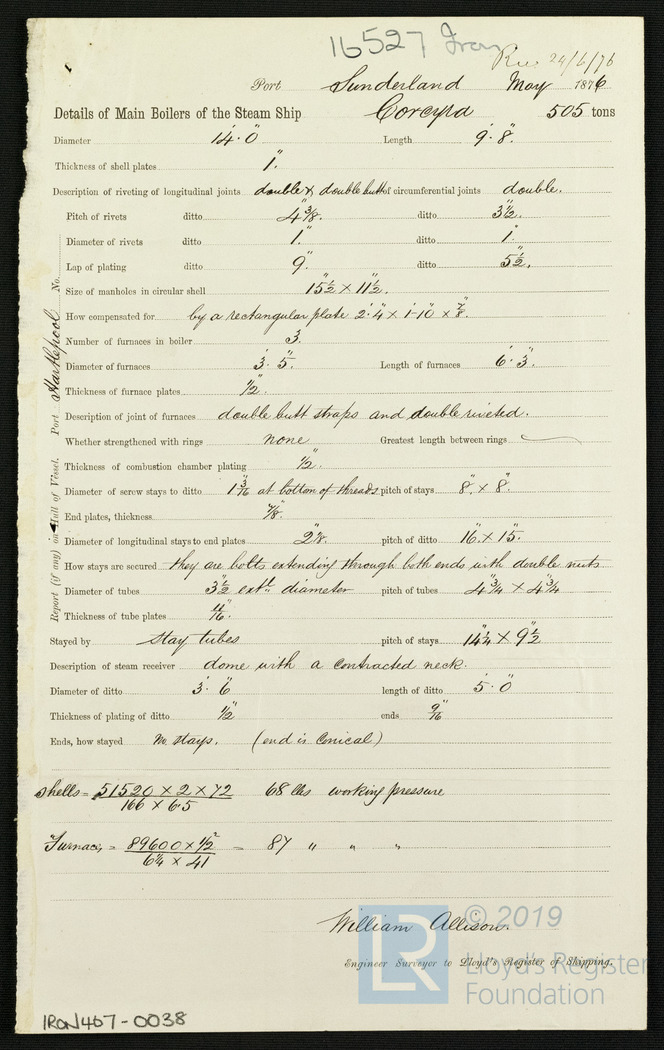 16527 Iron
Rec 24/6/76
Port Sunderland May 1876
Details of Main Boilers of the Steam Ship Corcyra 505 tons
Diameter 14'. 0" Length 9'. 8"
Thickness of shell plates 1".
Description of riveting of longitudinal joints double & double butt of circumferential joints double.
Pitch of rivets ditto 4 3/8". ditto 3 1/2".
Diameter of rivets ditto 1". ditto 1".
Lap of plating ditto 9". ditto 5 1/2".
Size of manholes in circular shell 15 1/2" × 11 1/2".
How compensated for by a rectangular plate 2'. 4" × 1'-10" × 7/8".
Number of furnaces in boiler 3.
Diameter of furnaces 3'. 5". Length of furnaces 6'. 3".
Thickness of furnace plates 1/2".
Description of joint of furnaces double butt straps and double riveted.
Whether strengthened with rings none Greatest length between rings
Thickness of combustion chamber plating 1/2".
Diameter of screw stays to ditto 1 3/16" at bottom of threads pitch of stays 8" × 8".
End plates, thickness 7/8".
Diameter of longitudinal stays to end plates pitch of ditto 16" × 15".
How stays are secured they are bolts extending through both ends with double nuts
Diameter of tubes 3 1/2" extl. diameter pitch of tubes 4 3/4" × 4 3/4"
Thickness of tube plates 11/16".
Stayed by stay tubes pitch of stays 14 1/4" × 9 1/2"
Description of steam receiver dome with a contracted neck.
Diameter of ditto 3'. 6" length of ditto 5'. 0"
Thickness of plating of ditto 1/2" ends 9/16"
Ends, how stayed No stays. (end is Conical)
Shells = 51520 × 2 × 72 68 lbs working pressure
166 × 6.5
Furnace, = 89600 × 1/2² = 87 " " "
6 1/4 × 41
William Allison.
Engineer Surveyor to Lloyd's Register of Shipping.
Report (if any) on Hull of Vessel. Port Hartlepool No.
LR © 2019
Lloyd's Register
Foundation
IRON407-0038